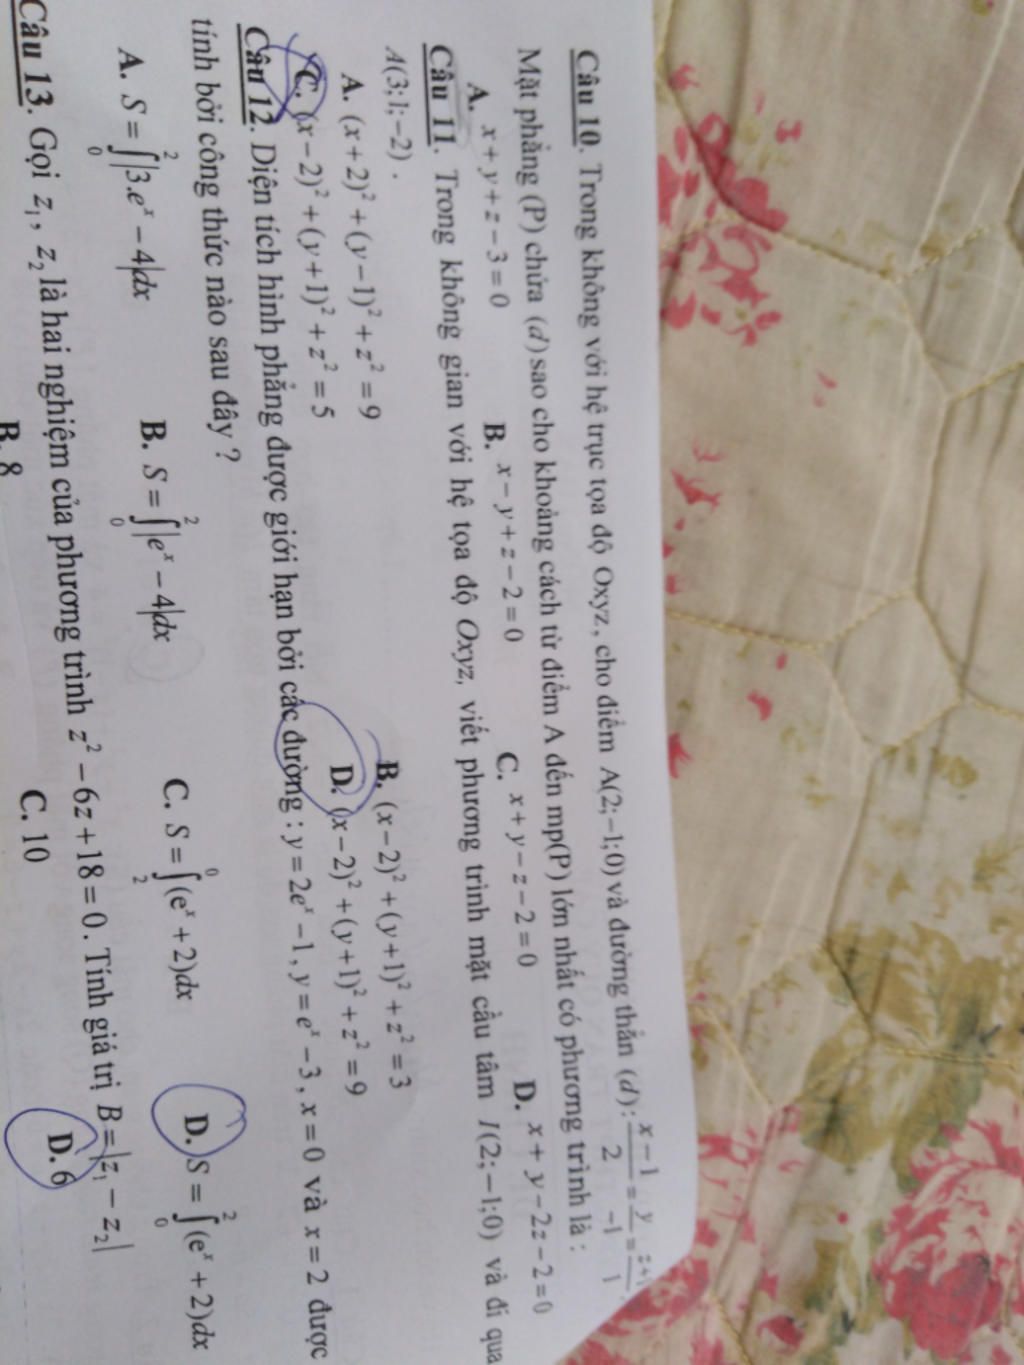 Câu 10. Trong không với hệ trục tọa độ Oxyz, cho điểm A(2;−1;0) và đường thẳn (d): x−1/2 = y/−1 = z+1/1.
Mặt phẳng (P) chứa (d) sao cho khoảng cách từ điểm A đến mp(P) lớn nhất có phương trình là :
A. x + y + z − 3 = 0 B. x − y + z − 2 = 0 C. x + y − z − 2 = 0 D. x + y − 2z − 2 = 0
Câu 11. Trong không gian với hệ tọa độ Oxyz, viết phương trình mặt cầu tâm I(2;−1;0) và đi qua
A(3;1;−2).
A. (x+2)² + (y−1)² + z² = 9 B. (x−2)² + (y+1)² + z² = 3
C. (x−2)² + (y+1)² + z² = 5 D. (x−2)² + (y+1)² + z² = 9
Câu 12. Diện tích hình phẳng được giới hạn bởi các đường : y = 2eˣ − 1, y = eˣ − 3, x = 0 và x = 2 được
tính bởi công thức nào sau đây ?
A. S = ∫₀²|3.eˣ − 4|dx B. S = ∫₀²|eˣ − 4|dx C. S = ∫₂⁰(eˣ + 2)dx D. S = ∫₀²(eˣ + 2)dx
Câu 13. Gọi z₁, z₂ là hai nghiệm của phương trình z² − 6z + 18 = 0. Tính giá trị B = |z₁ − z₂|
B. 8 C. 10 D. 6